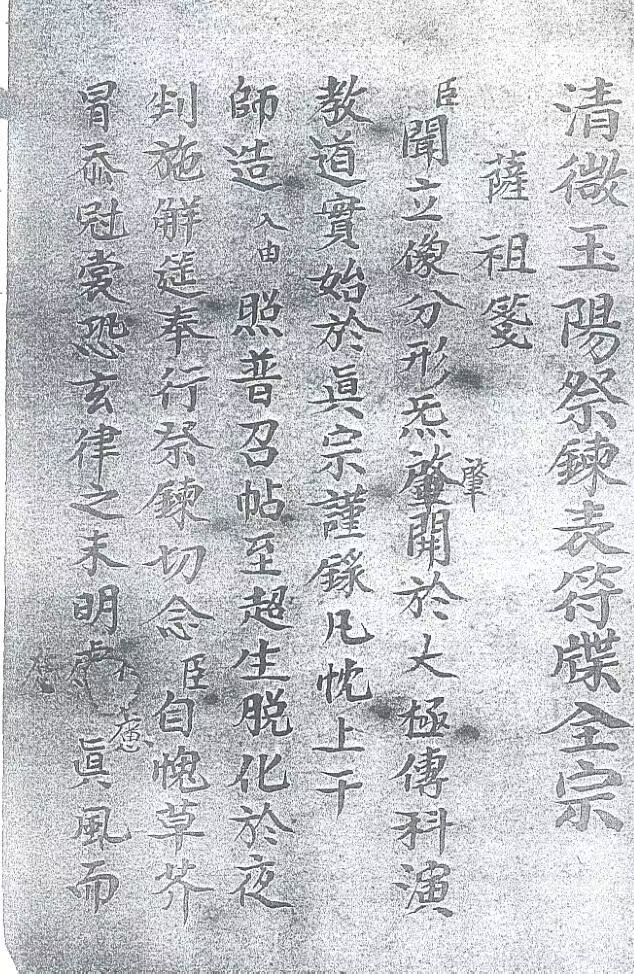 清微玉陽祭鍊表符牒全宗
薩祖箋
臣聞立像分形炁肇開於太極傳科演
肇
教道實始於眞宗謹錄凡忱上干
師造入由照普召帖至超生脫化於夜
刲施解筵奉行祭鍊切念臣自愧草芥
冒忝冠裳恐玄律之未明 眞風而